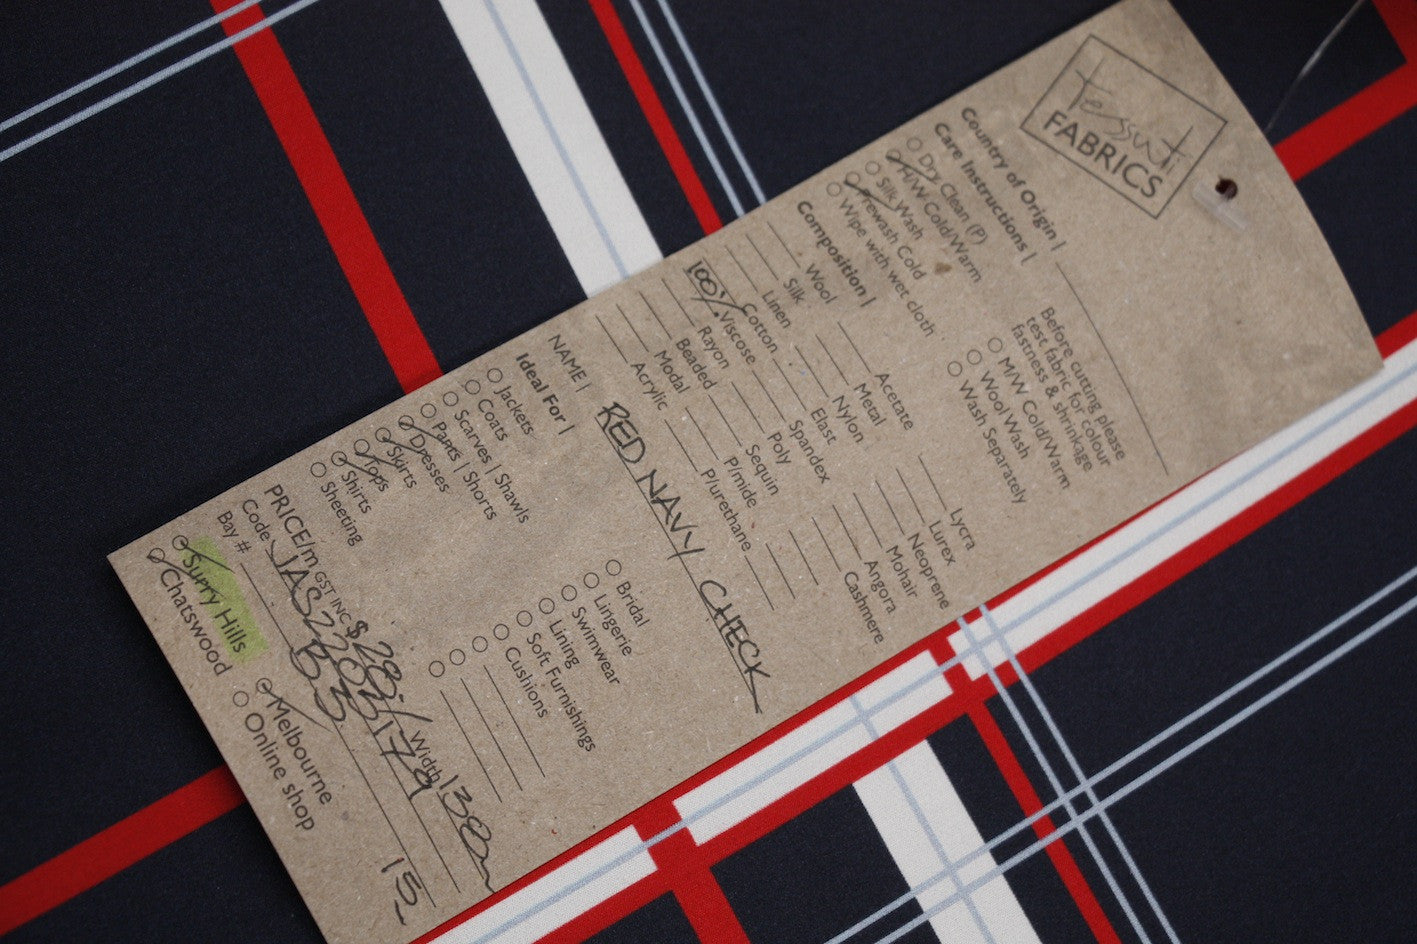 Tessuti
FABRICS
Country of Origin |
Care Instructions |
Dry Clean (P)
H/W Cold/Warm
Silk Wash
Prewash Cold
Wipe with wet cloth
Before cutting please
test fabric for colour
fastness & shrinkage
M/W Cold/Warm
Wool Wash
Wash Separately
Composition |
Wool
Silk
Linen
Cotton
100% Viscose
Rayon
Beaded
Modal
Acrylic
Acetate
Metal
Nylon
Elast
Spandex
Poly
Sequin
P/mide
P/urethane
Lycra
Lurex
Neoprene
Mohair
Angora
Cashmere
NAME | RED NAVY CHECK
Ideal For |
Jackets
Coats
Scarves | Shawls
Pants | Shorts
Dresses
Skirts
Tops
Shirts
Sheeting
Bridal
Lingerie
Swimwear
Lining
Soft Furnishings
Cushions
PRICE/m GST INC $ 29./ Width 138
Code JAS220B179
Bay # B3 15
Surry Hills
Chatswood
Melbourne
Online shop